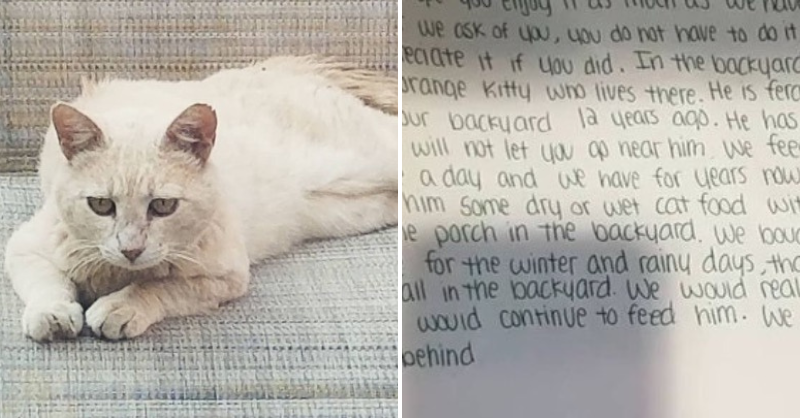 you enjoy it as much as we have
we ask of you, you do not have to do it
eciate it if you did. In the backyard
orange kitty who lives there. He is fera
our backyard 12 years ago. He has
will not let you go near him. We fee
a day and we have for years now
him some dry or wet cat food wit
e porch in the backyard. We boug
for the winter and rainy days, tha
all in the backyard. We would real
would continue to feed him. We
behind